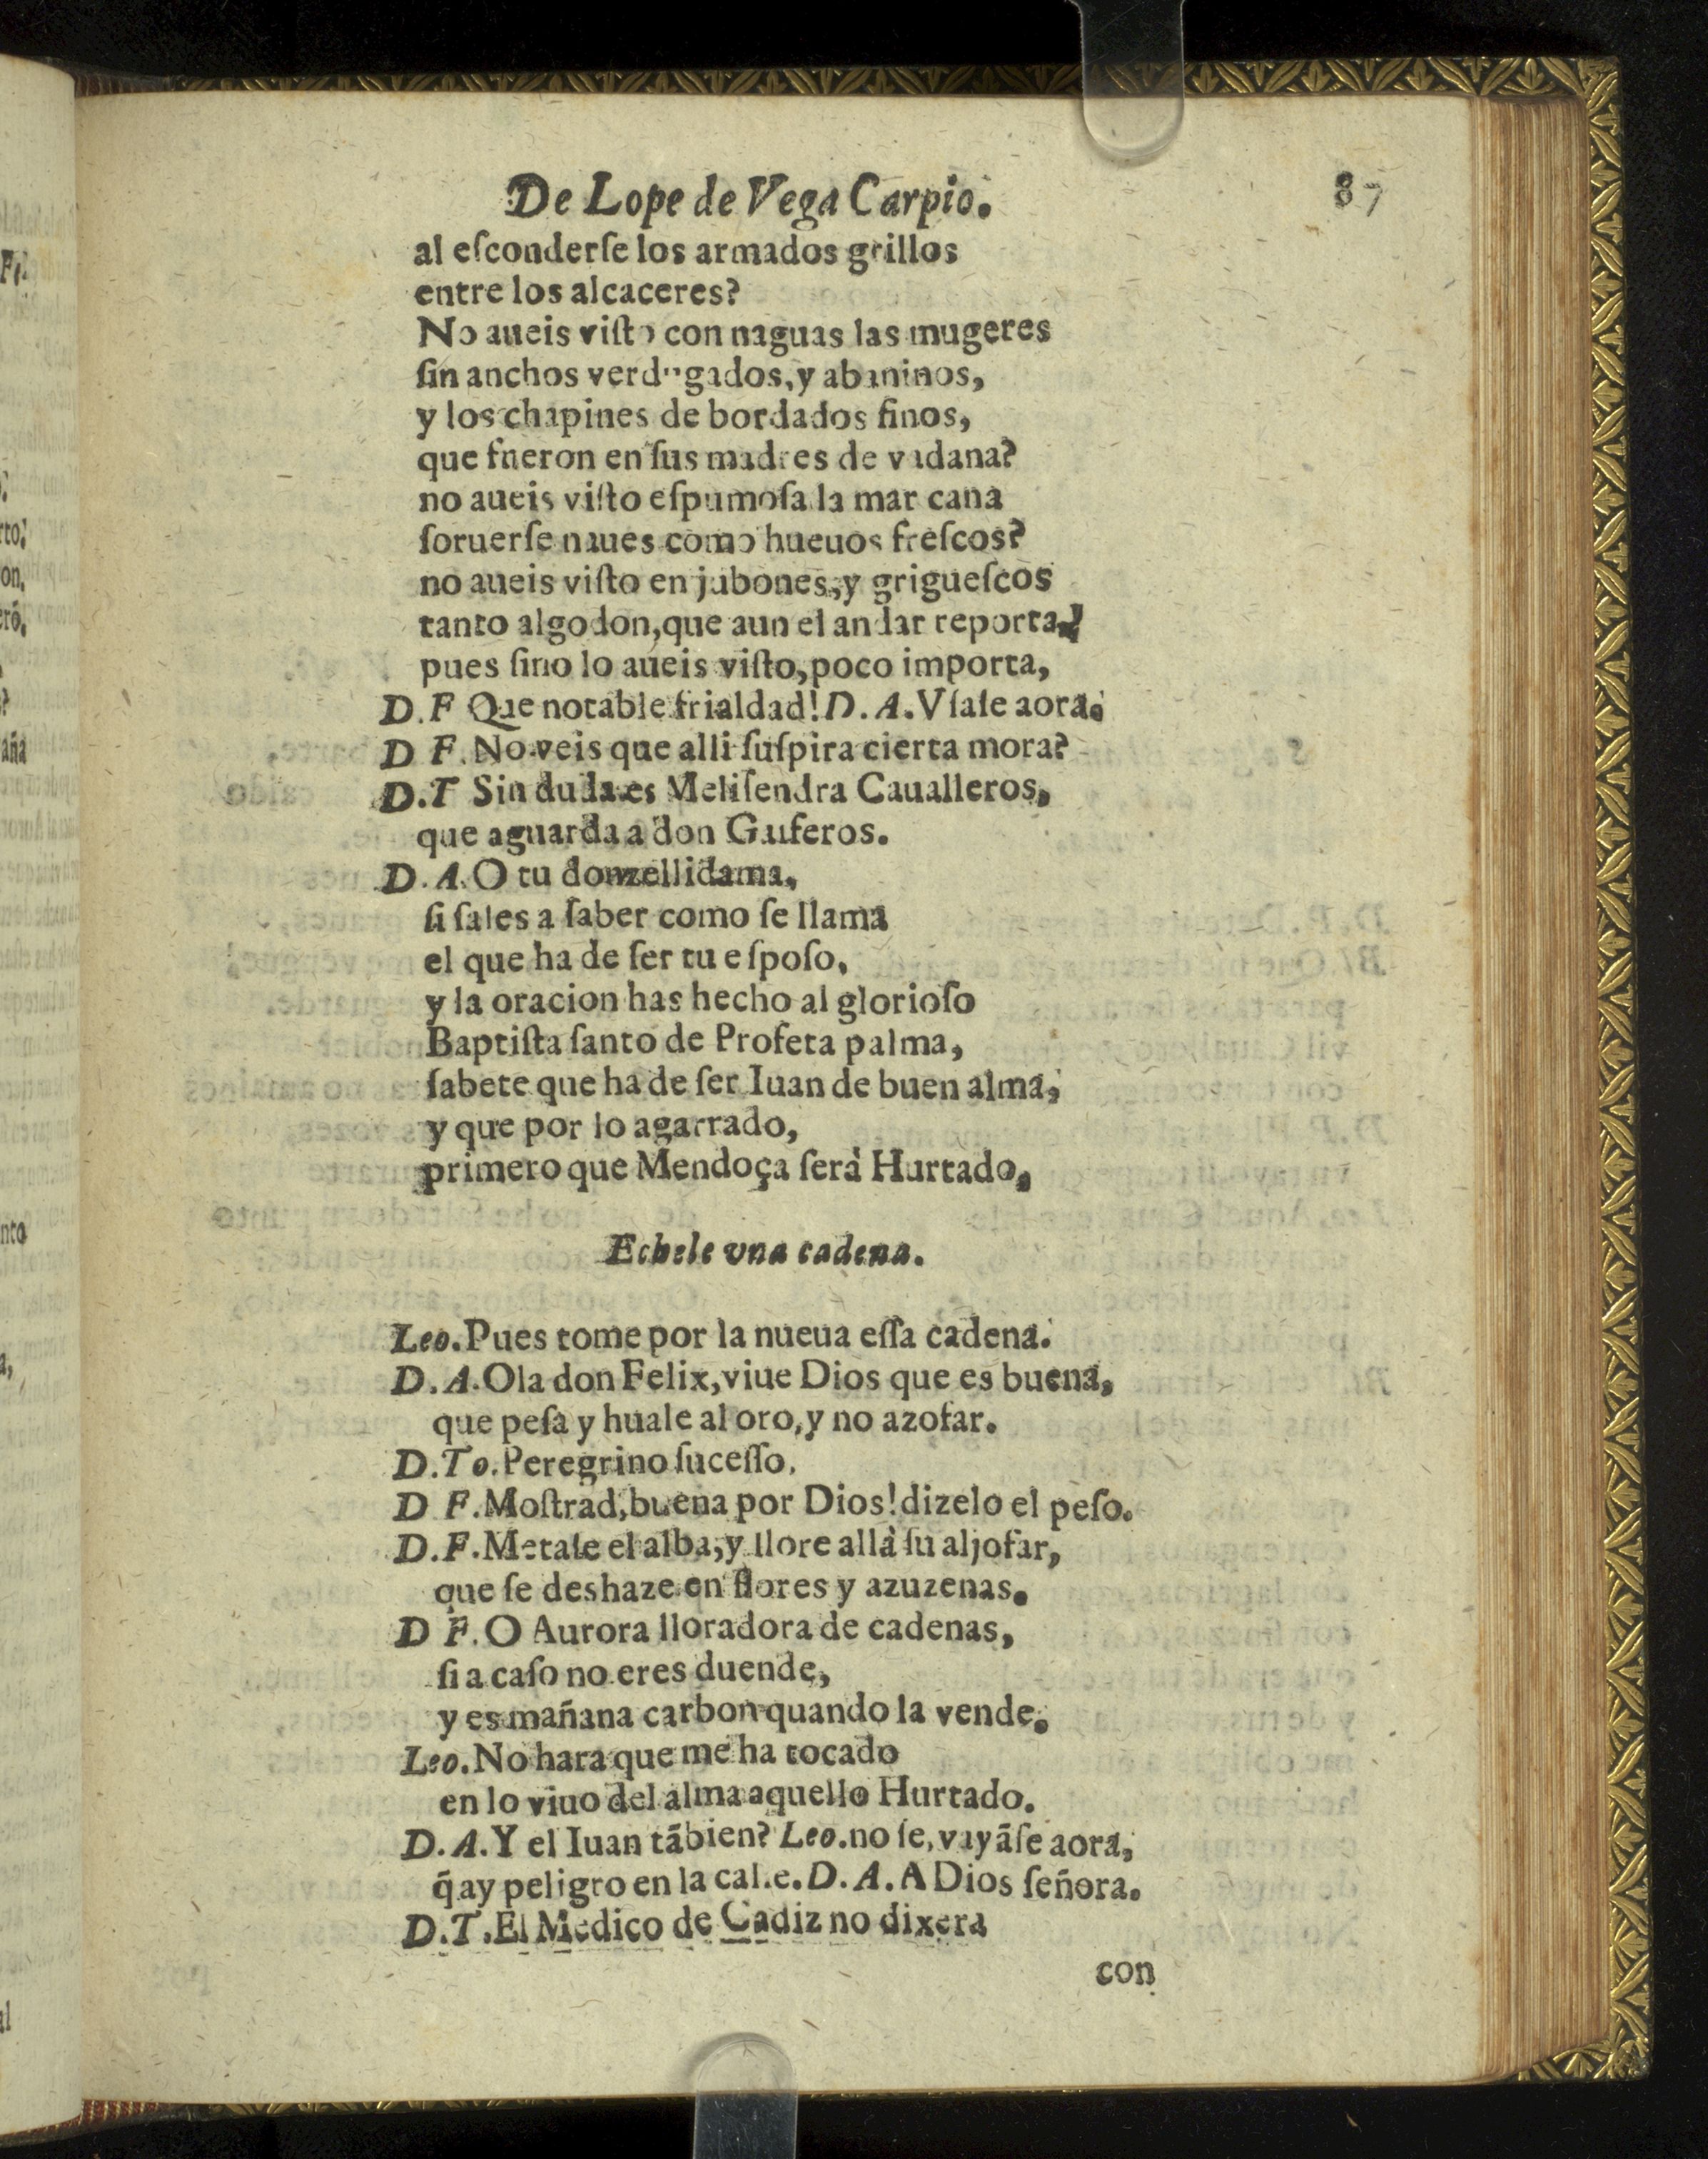 De Lope de Vega Carpio. 87
al eſconderſe los armados grillos
entre los alcaceres?
No aueis viſto con naguas las mugeres
ſin anchos verdugados, y abaninos,
y los chapines de bordados finos,
que fueron en ſus madres de vadana?
no aueis viſto eſpumoſa la mar cana
ſoruerſe naues como hueuos freſcos?
no aueis viſto en jubones, y grigueſcos
tanto algodon, que aun el andar reporta?
pues ſino lo aueis viſto, poco importa,
D. F Que notable frialdad! D. A. Vſaſe aora.
D F. No veis que alli ſuſpira cierta mora?
D. T Sin duda es Meliſendra Caualleros,
que aguarda a don Gaiferos.
D. A. O tu donzellidama,
ſi ſales a ſaber como ſe llama
el que ha de ſer tu eſpoſo,
y la oracion has hecho al glorioſo
Baptiſta ſanto de Profeta palma,
ſabete que ha de ſer Iuan de buen alma,
y que por lo agarrado,
primero que Mendoça ſerà Hurtado,
Echele vna cadena.
Leo. Pues tome por la nueua eſſa cadena.
D. A. Ola don Felix, viue Dios que es buena,
que peſa y huale al oro, y no azofar.
D. To. Peregrino ſuceſſo.
D F. Moſtrad, buena por Dios! dizelo el peſo.
D. F. Metaſe el alba, y llore allà ſu aljofar,
que ſe deshaze en flores y azuzenas.
D F. O Aurora lloradora de cadenas,
ſi a caſo no eres duende,
y es mañana carbon quando la vende.
Leo. No hara que me ha tocado
en lo viuo del alma aquello Hurtado.
D. A. Y el Iuan tãbien? Leo. no ſe, vayãſe aora,
q̃ ay peligro en la calle. D. A. A Dios ſeñora.
D. T. El Medico de Cadiz no dixera
con